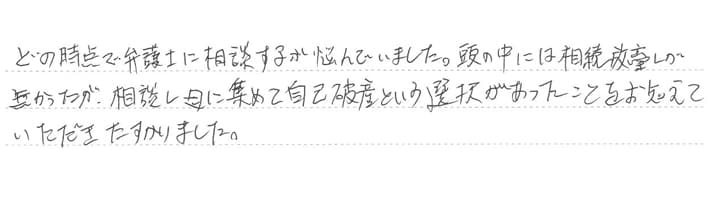 どの時点で弁護士に相談するか悩んでいました。頭の中には相続放棄しか
無かったが、相談し母に集めて自己破産という選択があったことをお教えて
いただきたすかりました。